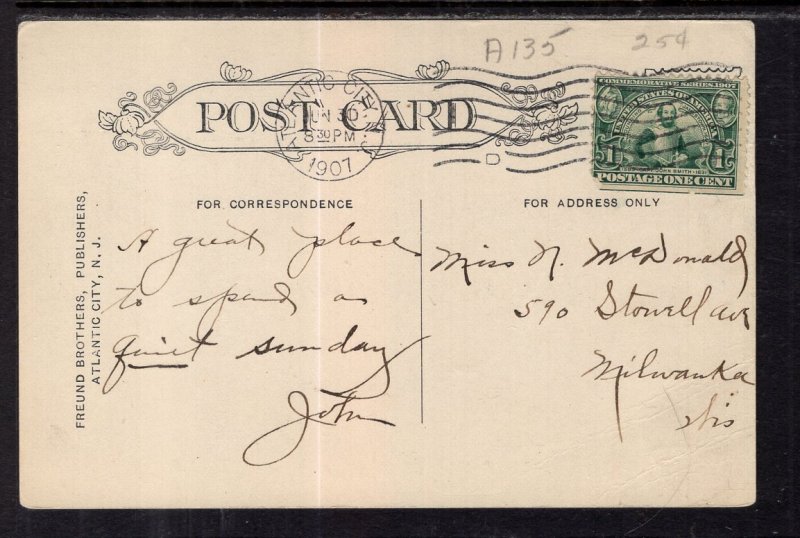 A135
25¢
POST CARD
ATLANTIC CITY
JUN 30
8 30 PM
1907
D
COMMEMORATIVE SERIES 1907
UNITED STATES OF AMERICA
1 1
POSTAGE ONE CENT
FOR CORRESPONDENCE
FOR ADDRESS ONLY
FREUND BROTHERS, PUBLISHERS,
ATLANTIC CITY, N. J.
A great place
to spend a
quiet sunday
John
Miss N. McDonald
590 Stowell ave
Milwauka
Wis